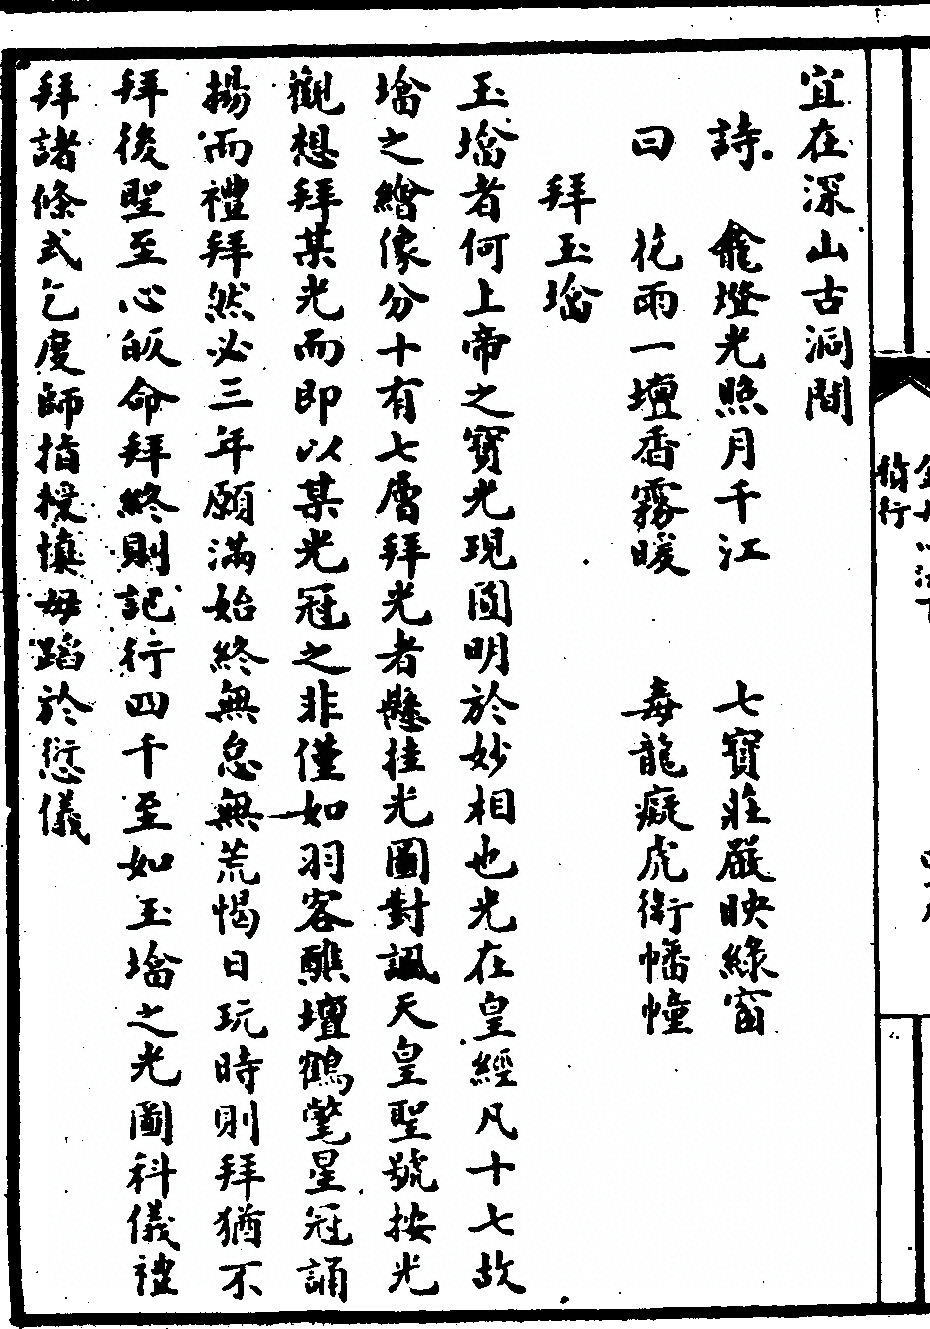 宜在深山古洞間
詩 龕燈光照月千江 七寶莊嚴映綠窗
曰 花雨一壇香霧暖 毒龍癡虎衛幡幢
拜玉墖
玉墖者何上帝之寶光現圓明於妙相也光在皇經凡十七故
墖之繒像分十有七層拜光者懸挂光圖對諷天皇聖號按光
觀想拜某光而即以某光冠之非僅如羽客醮壇鶴氅星冠誦
揚而禮拜然必三年願滿始終無怠無荒愒日玩時則拜猶不
拜後聖至心皈命拜終則記行四千至如玉墖之光圖科儀禮
拜諸條式乞度師指授慎毋蹈於愆儀